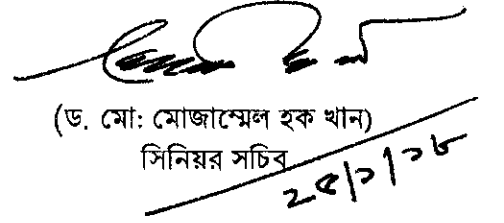 (ড. মো: মোজাম্মেল হক খান)
সিনিয়র সচিব
২৫/১/১৮